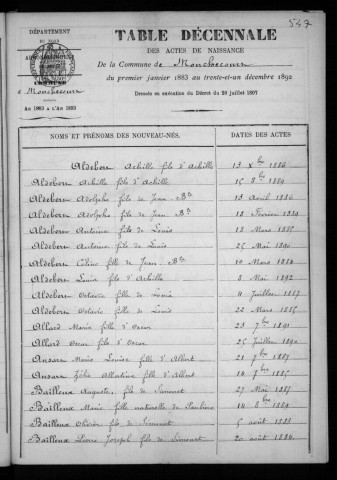 547
DÉPARTEMENT
DU NORD
TABLE DÉCENNALE
DES ACTES DE NAISSANCE
De la Commune de Monchecourt
du premier janvier 1883 au trente-et-un décembre 1892
Dressée en exécution du Décret du 20 juillet 1807
COMMUNE
d Monchecourt
AN 1883 A L'AN 1893
NOMS ET PRÉNOMS DES NOUVEAU-NÉS.
DATES DES ACTES
Aldebert Achille fils d'Achille 13 Xbre 1886
Aldebert Achille fils d'Achille 15 8bre 1889
Aldebert Adolphe fils de Jean Bte 13 Avril 1886
Aldebert Adolphe fils de Jean Bte 18 Février 1889
Aldebert Antoine fils de Louis 13 Mars 1885
Aldebert Antoine fils de Louis 25 Mai 1890
Aldebert Céline fille de Jean Bte 10 Mars 1884
Aldebert Louis fils d'Achille 8 Mai 1892
Aldebert Octavie fille de Louis 4 Juillet 1887
Aldebert Octavie fille de Louis 22 Mars 1885
Allard Maria fille d'Oscar 23 7bre 1891
Allard Oscar fils d'Oscar 25 Juillet 1892
Ansart Marie Louise fille d'Albert 21 7bre 1887
Ansart Zélie Albertine fille d'Albert 14 7bre 1885
Bailleux Auguste fils de Simonet 27 Mai 1887
Bailleux Marie fille naturelle de Pauline 14 8bre 1884
Bailleux Olivier fils de Simonet 5 août 1883
Bailleux Pierre Joseph fils de Simonet 20 août 1884